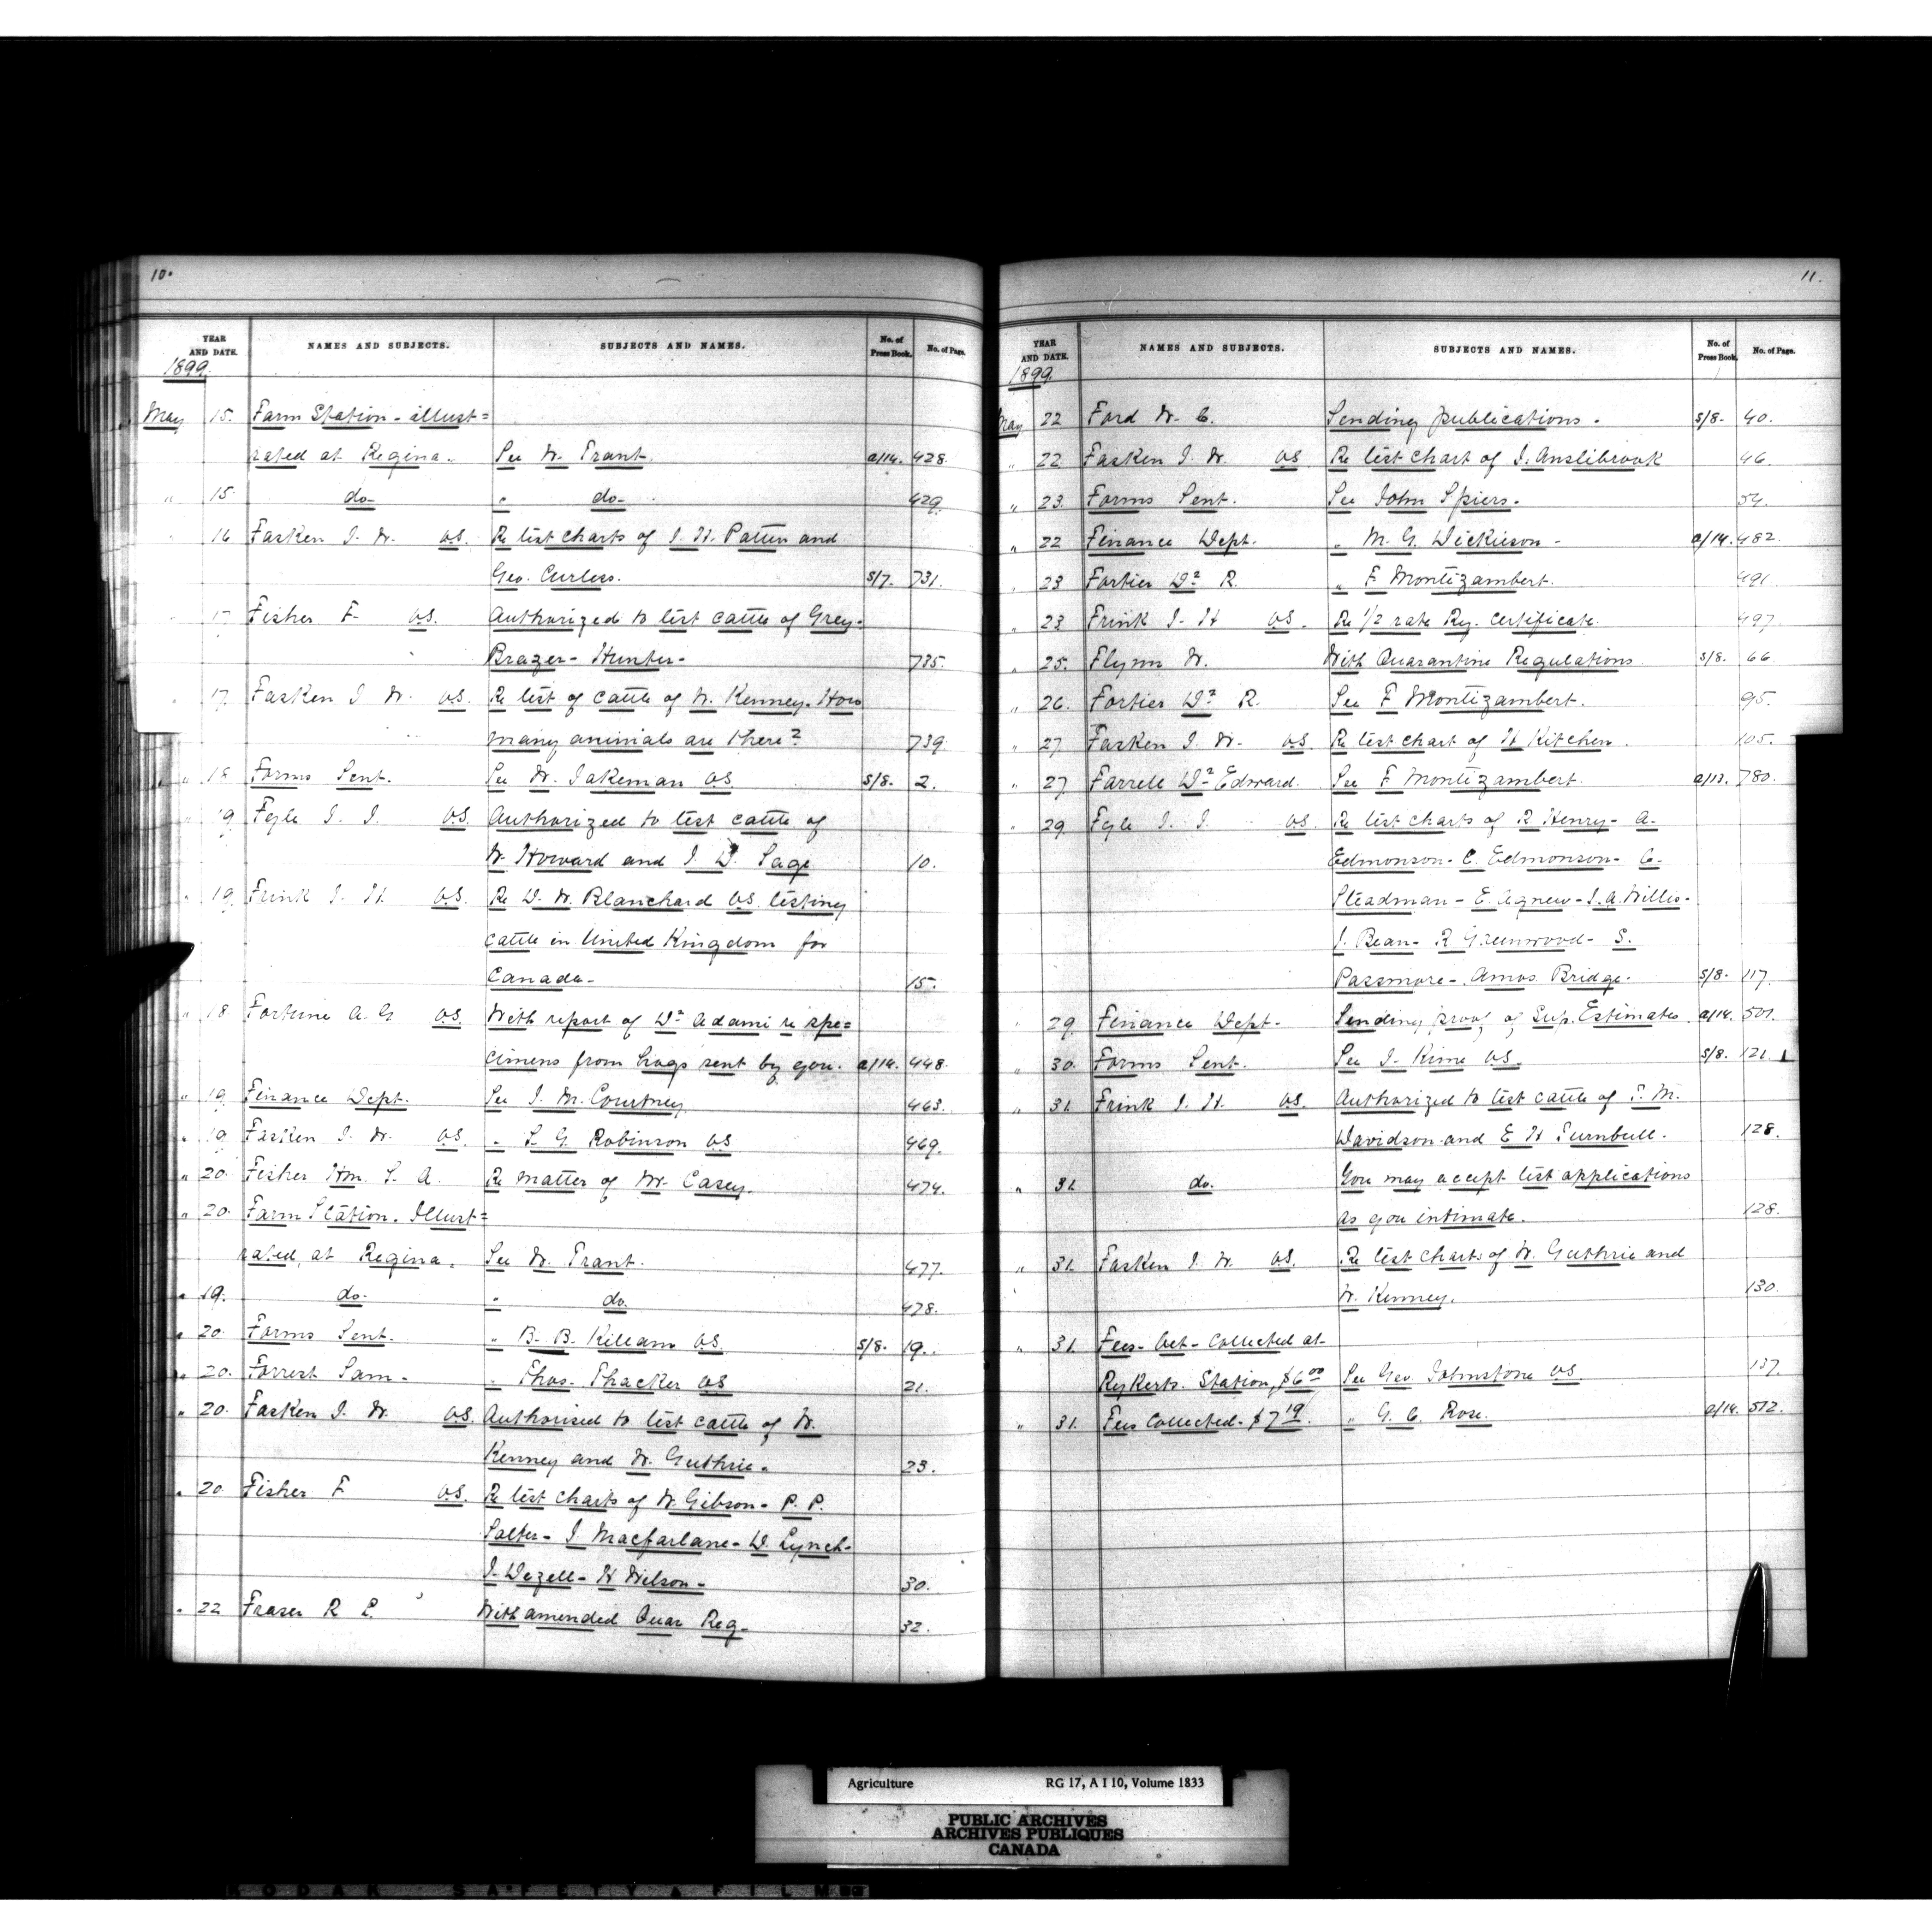 10.
YEAR AND DATE. NAMES AND SUBJECTS. SUBJECTS AND NAMES. No. of Press Book. No. of Page.
1899
May 15. Farm Station - illust=
rated at Regina. See W. Trant. a/14. 428.
" 15. do- " do- 429.
16 Fasken J. W. V.S. Re test charts of J. H. Patten and
Geo. Curless. S/7. 731.
17 Fisher F. V.S. Authorized to test cattle of Grey-
Brazer- Hunter- 735.
" 17. Fasken J. W. V.S. Re test of cattle of W. Kenney. How
many animals are there? 739.
" 18 Forms Sent. See W. Jakeman V.S. S/8. 2.
" 19 Fyle J. J. V.S. Authorized to test cattle of
W. Howard and J. D. Sage 10.
" 19. Frink J. H. V.S. Re D. W. Blanchard V.S. testing
cattle in United Kingdom for
Canada- 15.
" 18 Fortune A. G. V.S. With report of Dr Adami re spe=
cimens from hogs sent by you. a/14. 448.
" 19. Finance Dept. See J. M. Courtney 463.
" 19. Fasken J. W. V.S. " S. G. Robinson V.S. 469.
" 20. Fisher Hon. S. A. Re matter of Mr. Casey. 474.
" 20. Farm Station. Illust=
rated, at Regina. See W. Trant. 477.
" 19. do- " do. 478.
" 20. Forms Sent. " B. B. Killam V.S. S/8. 19.
" 20. Forrest Sam- " Thos. Thacker V.S. 21.
" 20. Fasken J. W. V.S. Authorised to test cattle of W.
Kenney and W. Guthrie. 23.
" 20. Fisher F V.S. Re test charts of W. Gibson- P. P.
Salter- J. Macfarlane- D. Lynch-
J. Dezell- H Wilson- 30.
" 22 Fraser R L. With amended Quar Reg- 32.
11.
YEAR AND DATE. NAMES AND SUBJECTS. SUBJECTS AND NAMES. No. of Press Book. No. of Page.
1899
May 22 Ford W. C. Sending publications. S/8. 40.
" 22 Fasken J. W. V.S. Re test chart of J. Anslibrook 46.
" 23. Forms Sent. See John Spiers. 54.
" 22 Finance Dept. " M. G. Dickieson- a/14. 482.
" 23 Fortier Dr R. " F. Montizambert. 491.
" 23 Frink J. H V.S. Re 1/2 rate Ry. certificate. 497.
" 25. Flynn W. With Quarantine Regulations. S/8. 66.
" 26. Fortier Dr R. See F Montizambert. 95.
" 27 Fasken J. W. V.S. Re test chart of H Kitchen. 105.
" 27 Farrell Dr Edward. See F Montizambert. a/13. 780.
" 29. Fyle J. J. V.S. Re test charts of R Henry- A-
Edmonson- C. Edmonson- C-
Steadman- E. Agnew- J. A. Willis-
J. Bean- R Greenwood- S.
Passmore- Amos Bridge- S/8. 117.
" 29. Finance Dept- Sending proof of Sup. Estimates. a/14. 501.
" 30. Forms Sent. See J. Kime V.S. S/8. 121.
" 31. Frink J. H. V.S. Authorized to test cattle of T. M.
Davidson and E H Turnbull. 128.
" 31. do. You may accept test applications
as you intimate. 128.
" 31. Fasken J. W. V.S. Re test charts of W. Guthrie and
W. Kenney. 130.
" 31. Fees- Vet- Collected at-
Rykerts. Station, $6 00 See Geo. Johnstone V.S. 137.
" 31. Fees Collected- $7 19. " G. C. Rose. a/14. 512.
Agriculture RG 17, A I 10, Volume 1833
PUBLIC ARCHIVES
ARCHIVES PUBLIQUES
CANADA